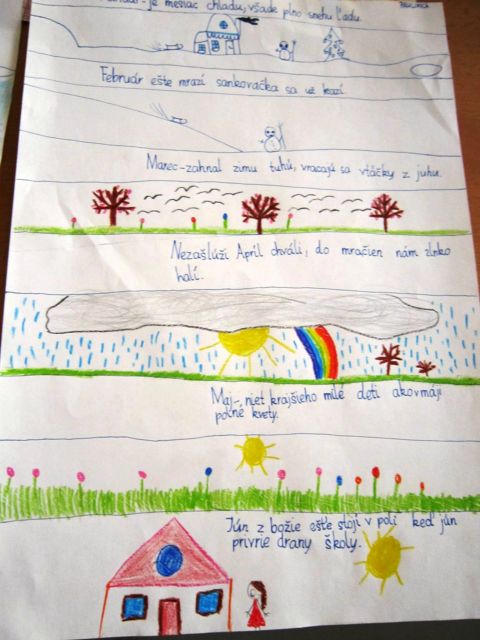 je mesiac chladu, všade plno snehu ľadu.
Február ešte mrazí sankovačka sa už kazí.
Marec-zahnal zimu tuhú, vracajú sa vtáčky z juhu.
Nezaslúži Apríl chváli, do mračien nám slnko
halí.
Maj-, niet krajšieho milé deti ako v máji
poľné kvety.
Jún z božie ešte stojí v poli keď jún
privrie drany školy.